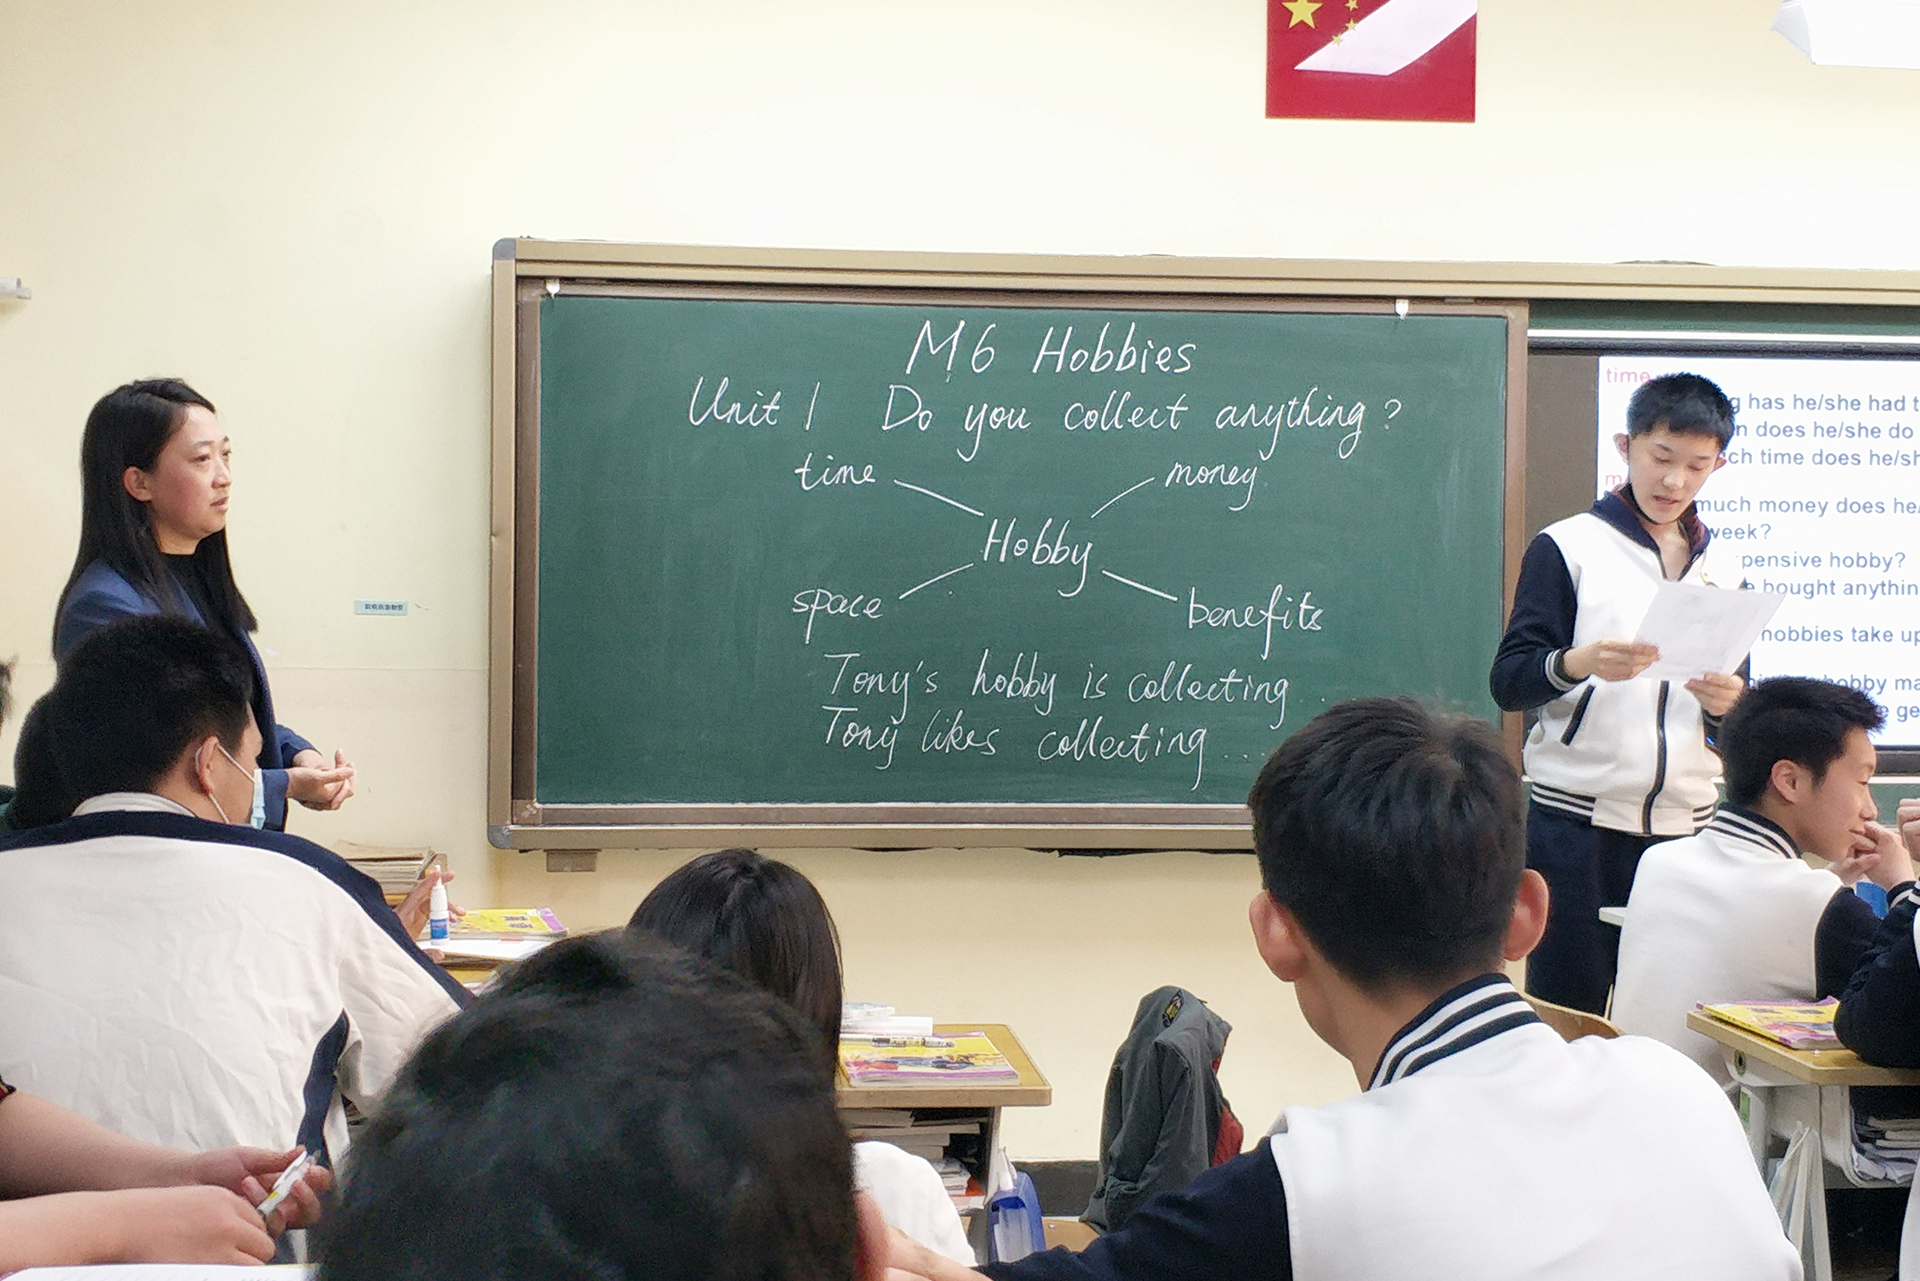 M6 Hobbies
Unit 1 Do you collect anything?
time money
Hobby
space benefits
Tony's hobby is collecting ...
Tony likes collecting ...
time
has he/she had
does he/she do
time does he/she
much money does he/
week?
hobby?
bought anything
hobbies take up
hobby